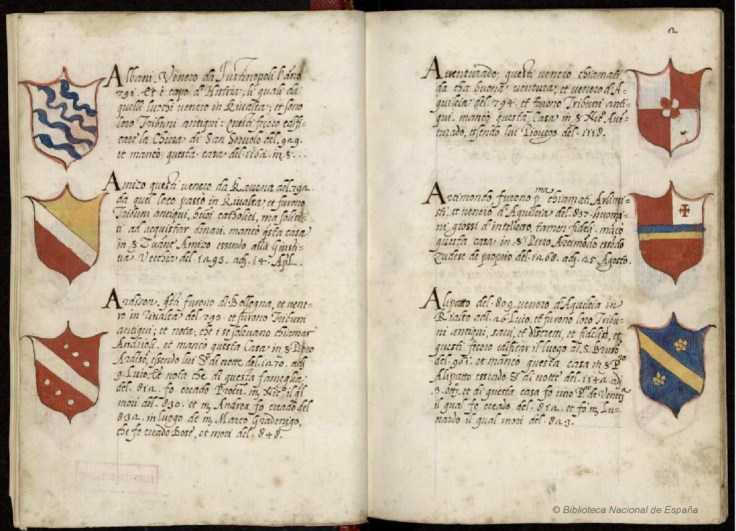 Albani, Veneto da Justinopoli l'año
791. et è capo d'Histria, li quali da
quelli luochi veneto in Rivalta; et sono
loro Tribuni antiqui: questi fecero edifi-
care la Chiesa di San Servolo del. 929.
et mancò questa casa del 1162. in s...
Amizo questi veneto da Ravena del. 790.
da quel loco passò in Rivalta; et furono
Tribuni antiqui, buoi catholici, ma
ad acquistar dinari. mancò q̃sta casa
in S. Amizo essendo alla Giusti-
tia Vecchia del 1293. adj. 14. Apł.
Ardison, q̃sti furono di Bollogna, et vene-
ro in Rivalta del. 790. et furono Tribuni
antiqui; et nota, che i se solevano chiamar
Ardizoli. et mancò questa Casa in
essendo lui di notte del. 1270. adj
9. Luio. Et nota che di questa fameglia
del. 812. fo creado Nic. il ql
morì del. 830. et m̃ Andrea fo creado del
832. in luogo de m̃ Marco Gradenigo,
che fo creado Dose, et morì del. 848.
12
Aventurado; questi veneto chiamati
da cha buona ventura; et veneto d'A-
quileia del. 794. et furono Tribuni anti-
qui. mancò questa Casa in S. Nic. Aue-
turado, essendo lui Piovego del. 1118.
Arimondo furono p.ma chiamati
et veneto d'Aquilleia del. 837.
grossi d'intelletto, tamen fideli. mãcò
questa casa in S. Piero Arimõdo essẽdo
zudese de propio del. 1268. adj. 25. Agosto.
Alipatto del. 809. veneto d'Aquileia in
Rialto del. 26. Luio. et furono loro Tribu-
ni antiqui, savij, et discretti, et fidelis, et
questi fecero edificar il luogo di S.
del. 981. et mancò questa casa in S.
Alipatto essendo S.r di notte del. 1142. adj
3. et di questa casa fo uno de Venetj
il qual fo creado del. 812. et fo m̃ Lu-
nardo il qual morì del. 823.
© Biblioteca Nacional de España